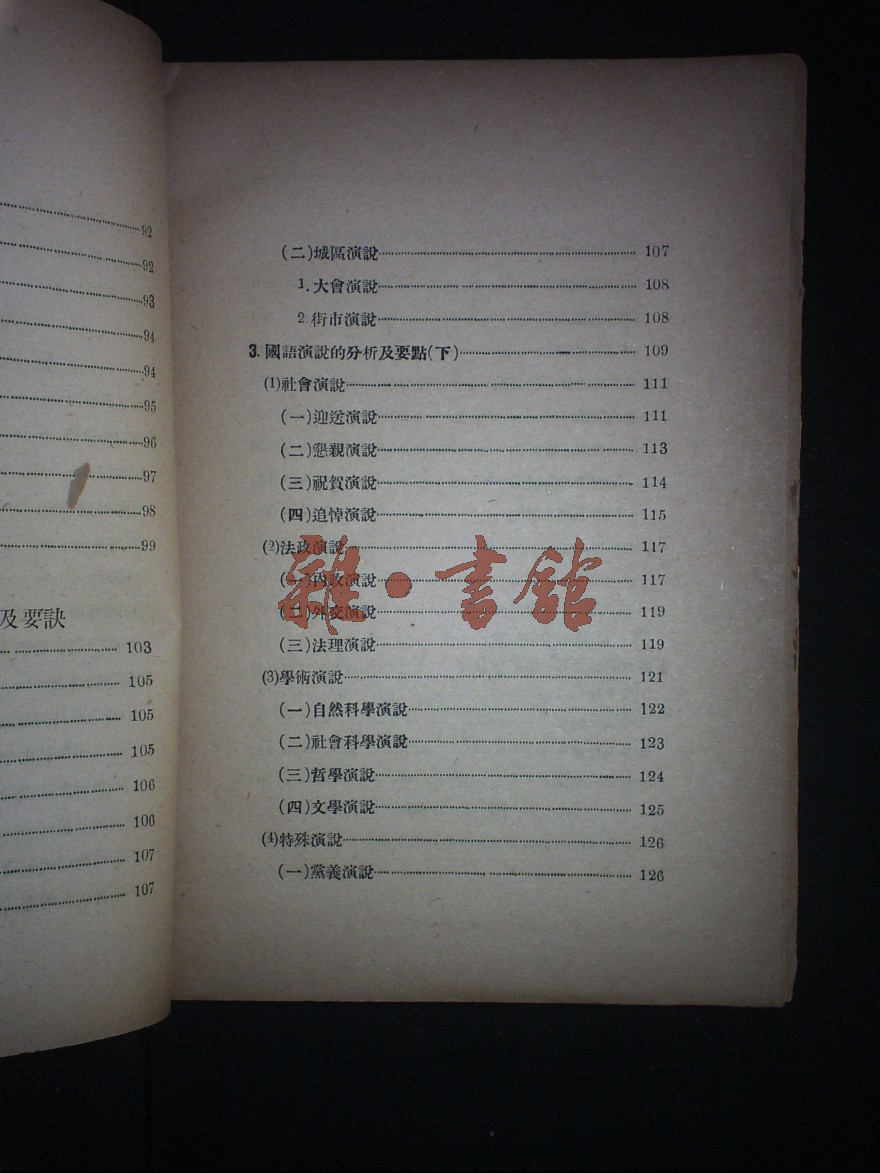 92
92
93
94
94
95
96
97
98
99
及要訣
103
105
105
105
106
106
107
107
(二)城區演說 107
1.大會演說 108
2.街市演說 108
3.國語演說的分析及要點(下) 109
(1)社會演說 111
(一)迎送演說 111
(二)懇親演說 113
(三)祝賀演說 114
(四)追悼演說 115
(2)法政演說 117
(一)內政演說 117
(二)外交演說 119
(三)法理演說 119
(3)學術演說 121
(一)自然科學演說 122
(二)社會科學演說 123
(三)哲學演說 124
(四)文學演說 125
(4)特殊演說 126
(一)黨義演說 126
雜·書館